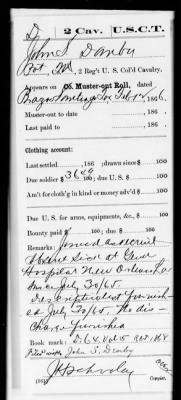 D 2 Cav. U.S.C.T.
John S. Danby
Pvt, 2 Reg't U. S. Col'd Cavalry.
Appears on Co. Muster-out Roll, dated
Brazos Santiago Tex Feb 12, 1866.
Muster-out to date , 186 .
Last paid to , 186 .
Clothing account:
Last settled , 186 ; drawn since $ 100
Due soldier $ 100; due U. S. $ 100
Am't for cloth'g in kind or money adv'd $ 100
Due U. S. for arms, equipments, &c., $ 100
Bounty paid $ 100; due $ 100
Remarks: Joined as recruit
Absent Sick at Genl
Hospital New Orleans La
since July 30/65.
Descriptive list furnish-
ed July 30/65. No dis-
charge furnished
Book mark:
John S. Denby
Copyist.